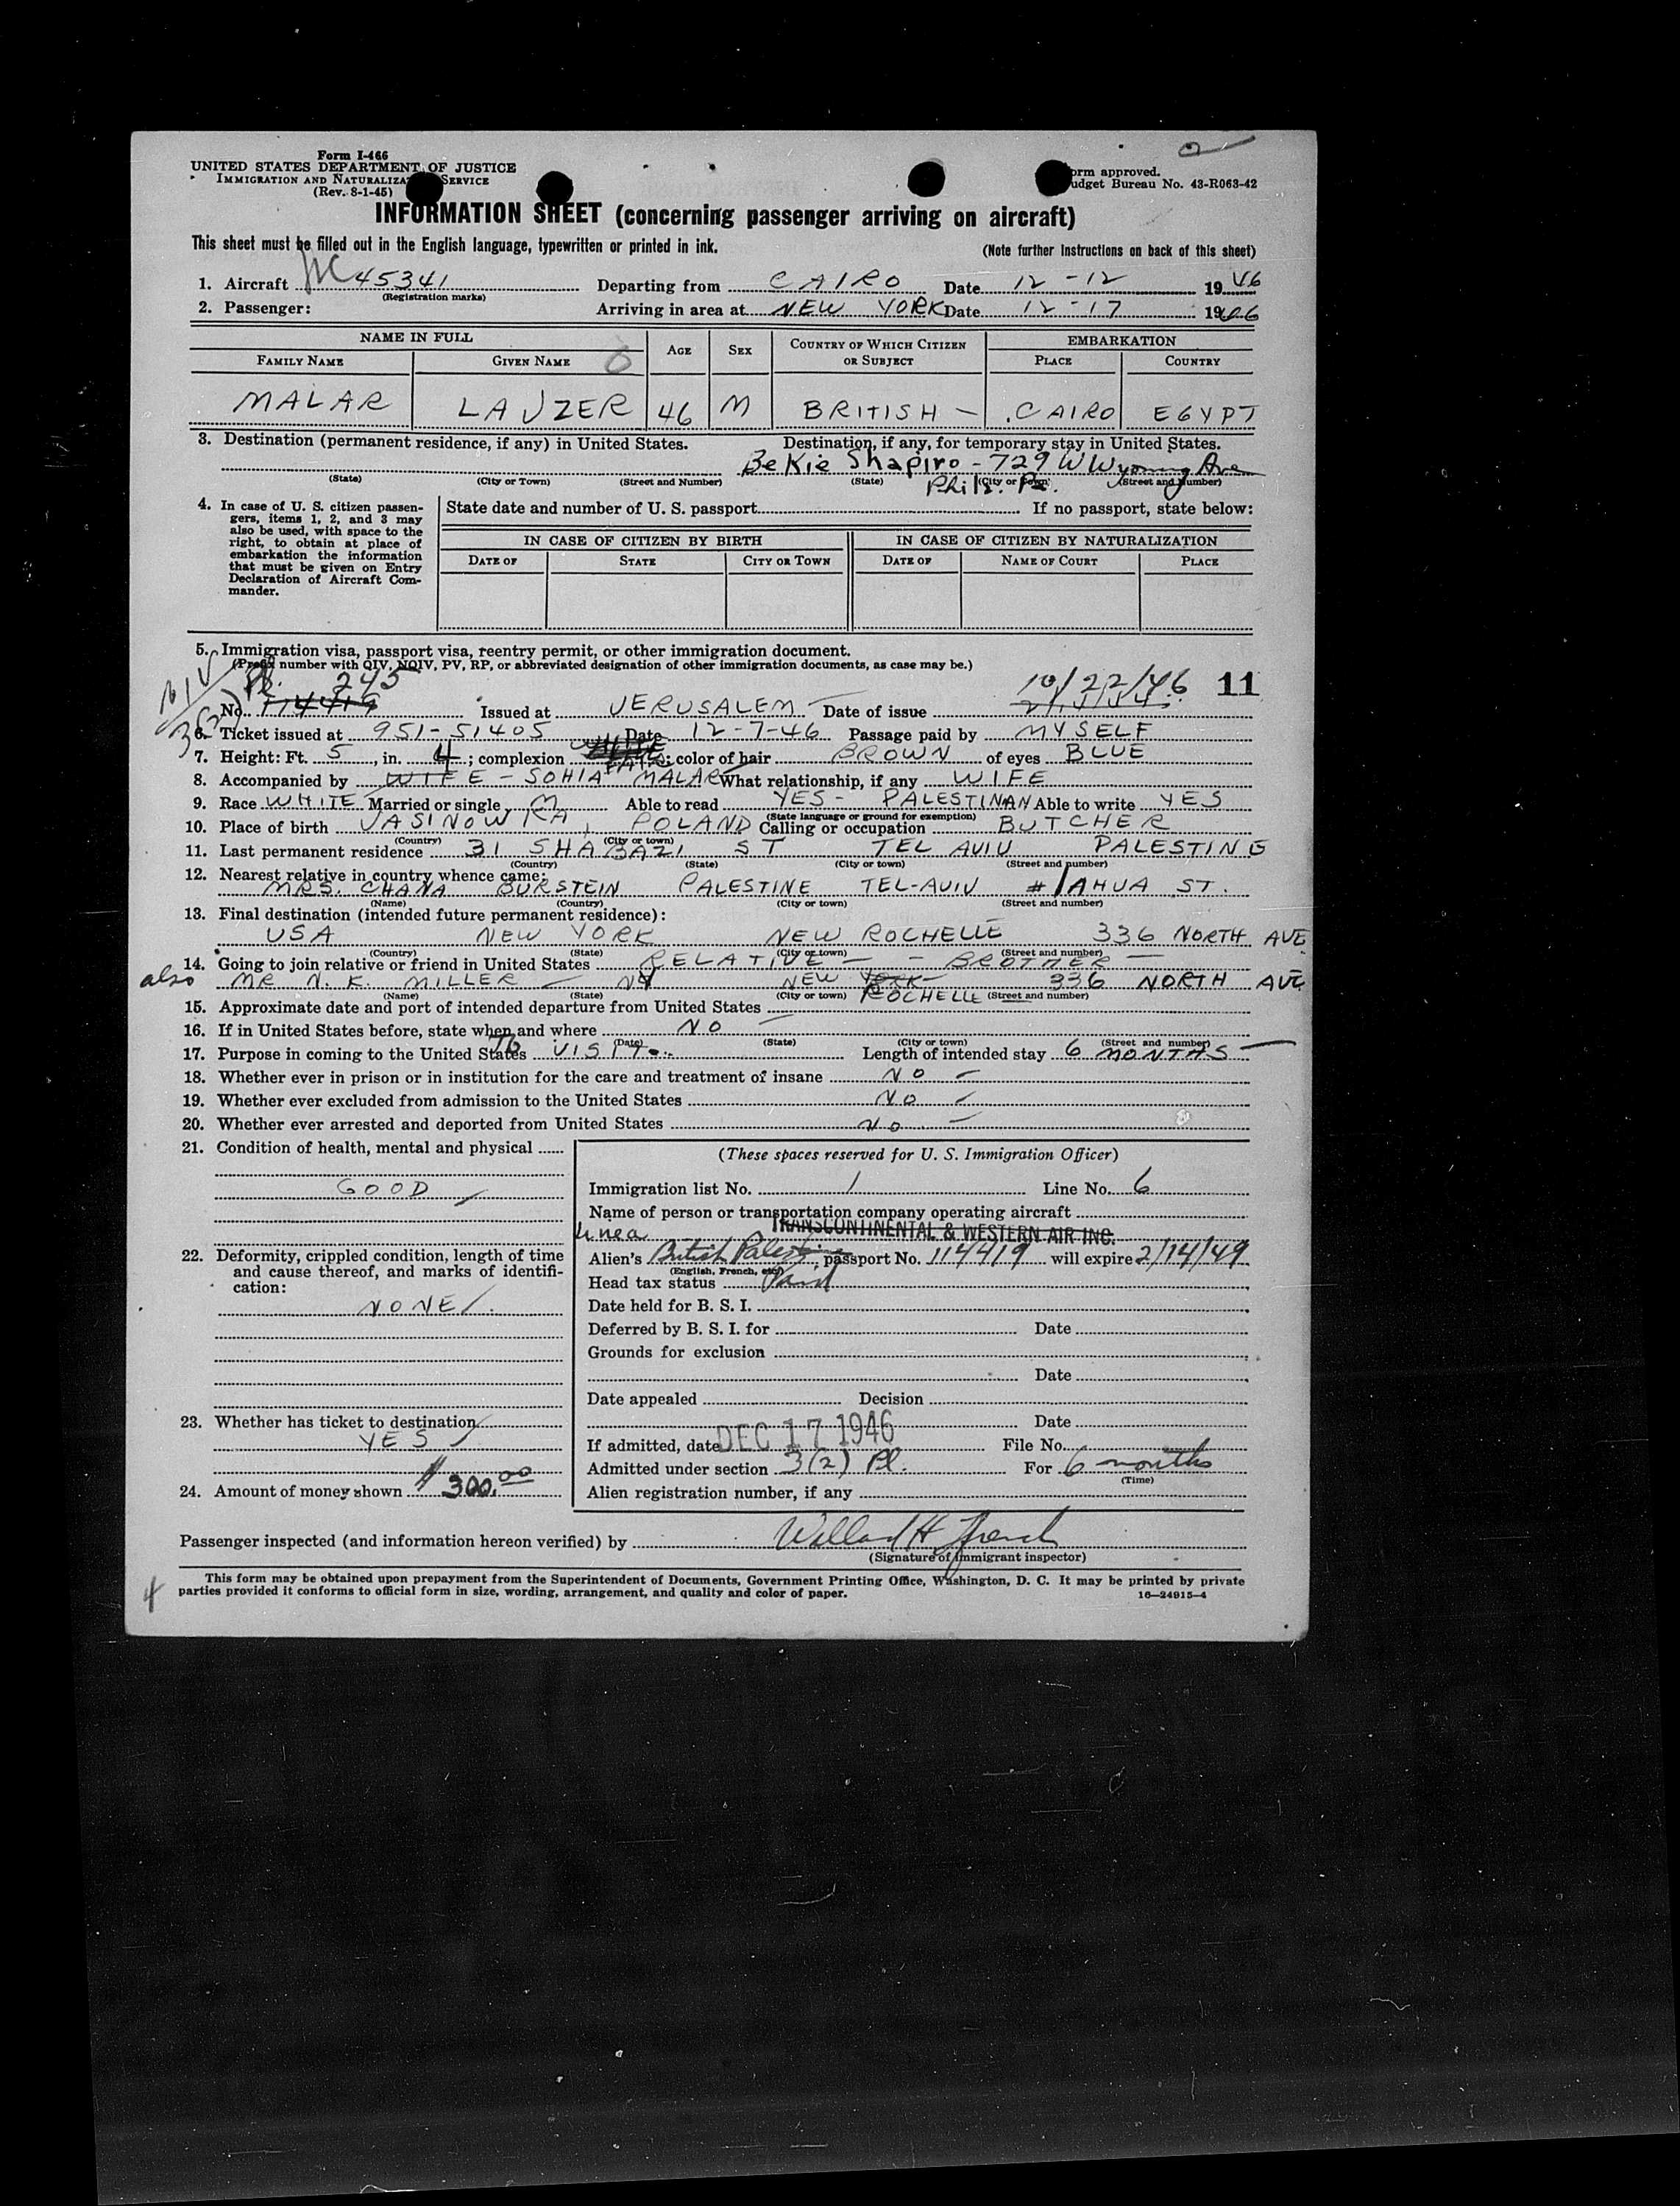 Form I-466
UNITED STATES DEPARTMENT OF JUSTICE
IMMIGRATION AND NATURALIZA SERVICE
(Rev. 8-1-45)
orm approved.
udget Bureau No. 43-R063-42
INFORMATION SHEET (concerning passenger arriving on aircraft)
This sheet must be filled out in the English language, typewritten or printed in ink.
(Note further instructions on back of this sheet)
1. Aircraft NC 45341 Departing from CAIRO Date 12-12 1946
(Registration marks)
2. Passenger: Arriving in area at NEW YORK Date 12-17 1946
NAME IN FULL AGE SEX COUNTRY OF WHICH CITIZEN OR SUBJECT EMBARKATION
FAMILY NAME GIVEN NAME PLACE COUNTRY
MALAR LAJZER 46 M BRITISH - CAIRO EGYPT
3. Destination (permanent residence, if any) in United States. Destination, if any, for temporary stay in United States.
Bekie Shapiro - 729 W Wyoming Ave
(State) (City or Town) (Street and Number) (State) (City or Town) (Street and Number)
Phila. Pa.
4. In case of U. S. citizen passengers, items 1, 2, and 3 may also be used, with space to the right, to obtain at place of embarkation the information that must be given on Entry Declaration of Aircraft Commander.
State date and number of U. S. passport If no passport, state below:
IN CASE OF CITIZEN BY BIRTH IN CASE OF CITIZEN BY NATURALIZATION
DATE OF STATE CITY OR TOWN DATE OF NAME OF COURT PLACE
5. Immigration visa, passport visa, reentry permit, or other immigration document.
(Prefix number with QIV, NQIV, PV, RP, or abbreviated designation of other immigration documents, as case may be.)
NIV 3(2) Pl. 245 10/22/46 11
No. 114419 Issued at JERUSALEM Date of issue
6. Ticket issued at 951-51405 Date 12-7-46 Passage paid by MYSELF
7. Height: Ft. 5, in. 4; complexion ; color of hair BROWN of eyes BLUE
8. Accompanied by WIFE - SOHIA MALAR What relationship, if any WIFE
9. Race WHITE Married or single M Able to read YES - PALESTINAN Able to write YES
(State language or ground for exemption)
10. Place of birth JASINOWKA, POLAND Calling or occupation BUTCHER
(Country) (City or town)
11. Last permanent residence 31 SHABAZI ST TEL AVIV PALESTINE
(Country) (State) (City or town) (Street and number)
12. Nearest relative in country whence came:
MRS. CHANA BURSTEIN PALESTINE TEL-AVIV #1 AHUA ST.
(Name) (Country) (City or town) (Street and number)
13. Final destination (intended future permanent residence):
USA NEW YORK NEW ROCHELLE 336 NORTH AVE
(Country) (State) (City or town) (Street and number)
14. Going to join relative or friend in United States RELATIVE - - BROTHER -
also MR N. K. MILLER - NY NEW YORK 336 NORTH AVE
(Name) (State) (City or town) ROCHELLE (Street and number)
15. Approximate date and port of intended departure from United States
16. If in United States before, state when and where NO
(Date) (State) (City or town) (Street and number)
17. Purpose in coming to the United States TO VISIT Length of intended stay 6 MONTHS
18. Whether ever in prison or in institution for the care and treatment of insane NO
19. Whether ever excluded from admission to the United States NO
20. Whether ever arrested and deported from United States NO
21. Condition of health, mental and physical
GOOD
22. Deformity, crippled condition, length of time and cause thereof, and marks of identification:
NONE
23. Whether has ticket to destination
YES
24. Amount of money shown $300.00
(These spaces reserved for U. S. Immigration Officer)
Immigration list No. 1 Line No. 6
Name of person or transportation company operating aircraft
TRANSCONTINENTAL & WESTERN AIR INC.
Alien's British Palestine passport No. 114419 will expire 2/14/49
(English, French, etc.)
Head tax status Paid
Date held for B. S. I.
Deferred by B. S. I. for Date
Grounds for exclusion
Date
Date appealed Decision
Date
If admitted, date DEC 17 1946 File No.
Admitted under section 3(2) Pl. For 6 months
(Time)
Alien registration number, if any
Passenger inspected (and information hereon verified) by Willard H. French
(Signature of immigrant inspector)
This form may be obtained upon prepayment from the Superintendent of Documents, Government Printing Office, Washington, D. C. It may be printed by private
parties provided it conforms to official form in size, wording, arrangement, and quality and color of paper. 16—24915-4
4